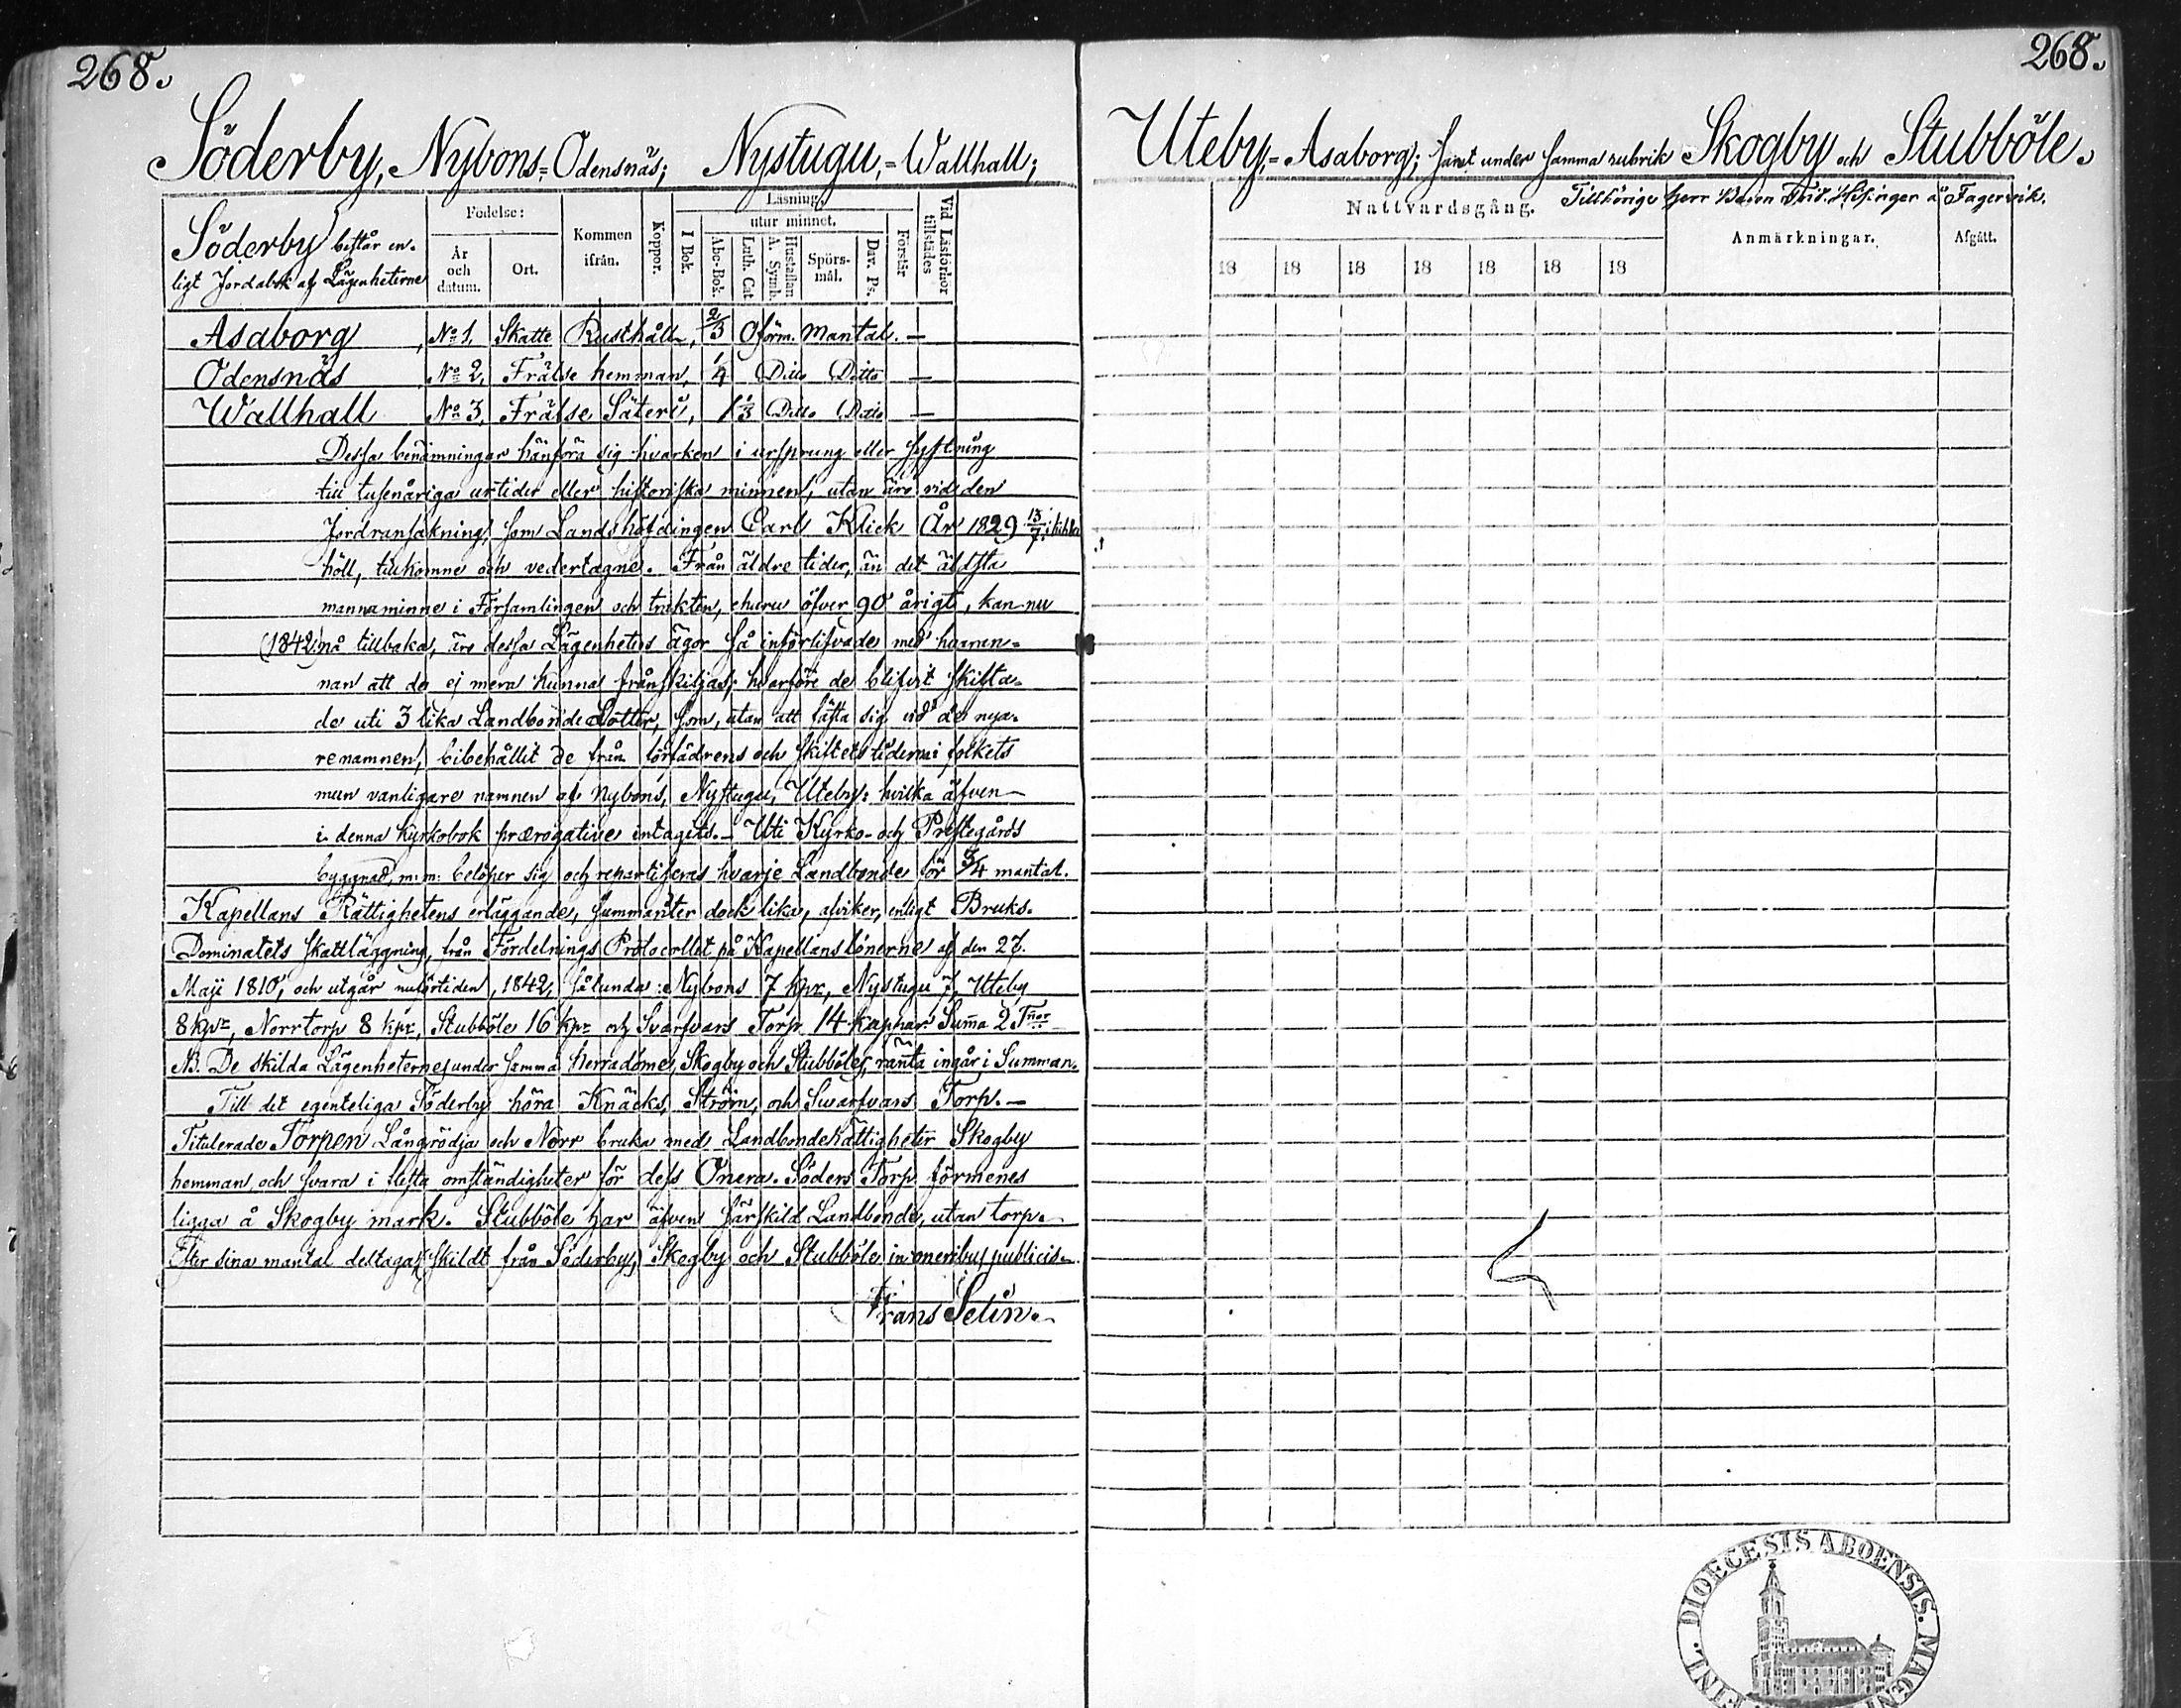 268.
268.
Söderby, Nybons=Odensnäs; Nystugu,=Wallhall;
Uteby,=Asaborg; samt under samma rubrik Skogby och Stubböle.
Tillhörige Herr Baron Frid. Hisinger å Fagervik.
Söderby består en-
ligt Jordabok af Lägenheterne
Födelse:
År
och
datum.
Ort.
Kommen
ifrån.
Koppor.
Läsning.
I Bok.
utur minnet.
Abc-Bok.
Luth. Cat.
Hustaflan
A. Symb.
Spörs-
mål.
Dav. Ps.
Förstår
Vid Läsförhör
tillstädes
Nattvardsgång.
18 18 18 18 18 18 18
Anmärkningar.
Afgått.
Asaborg, No 1, Skatte Rusthåll, 2/3 Oförm. Mantal. —
Odensnäs, No 2, Frälse hemman, 1/4 Ditto Ditto —
Wallhall No 3, Frälse Säteri, 1 1/3 Ditto Ditto —
Dessa benämningar hänföra sig hvarken i ursprung eller syftning
till tusenåriga urtider eller historiska minnen, utan äro vid den
Jordransakning, som Landshöfdingen Carl Klick År 1829 13/7
höll, tillkomne och vedertagne. Från äldre tider, än det äldsta
mannaminne i Församlingen och trakten, ehuru öfver 90 årigt, kan nu
(1842) nå tillbaka, äro dessa Lägenheters ägor så införlifvade med hvaran-
nan att de ej mera kunna frånskiljas; hvarföre de blifvit skifta-
de uti 3 lika Landbonde Lotter, som, utan att fästa sig vid de nya-
re namnen, bibehållit de från förfädrens och skiftets tider i folkets
mun vanligare namnen af Nybons, Nystugu, Uteby: hvilka äfven
i denna kyrkobok prærogative intagits. — Uti Kyrko- och Prestegårds
byggnad, m: m: belöper sig och repartiseras hvarje Landbonde för 3/4 mantal.
Kapellans Rättighetens erläggande, summan dock lika, afviker, enligt Bruks-
Dominatets skattläggning, från Fördelnings Protocollet på Kapellans lönerne af den 27.
Maji 1810, och utgår nuförtiden, 1842, sålunda: Nybons 7 kpr, Nystugu 7, Uteby
8 kpr, Norrtorp 8 kpr, Stubböle 16 kpr och Svarfvars Torp 14 kappar. Suma 2 Tnor
NB. De skilda Lägenheterne, under samma Herradöme, Skogby och Stubböle, ränta ingår i Summan.
Till det egenteliga Söderby höra Knäcks, Ström, och Svarfvars Torp. —
Titulerade Torpen Långrödja och Norr bruka med Landbonderättigheter Skogby
hemman, och svara i flesta omständigheter för dess Onera. Söders Torp förmenes
ligga å Skogby mark. Stubböle har äfven särskild Landbonde, utan torp.
Efter sina mantal deltaga (skildt från Söderby) Skogby och Stubböle in oneribus publicis.
Frans Selin.
FINL. DIOECESIS ABOENSIS. MAGNI